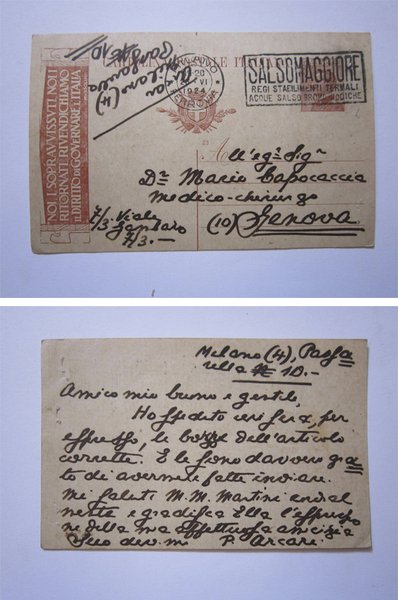 CARTOLINA POSTALE ITALIANA
NOI I SOPRAVVISSVTI NOI I
RITORNATI RIVENDICHIAMO
IL DIRITTO DI GOVERNARE L'ITALIA
Milano (4)
10
MILANO
20
VI
1924
FERROVIA
SALSOMAGGIORE
REGI STABILIMENTI TERMALI
ACQUE SALSO BROMO IODICHE
All'eg. Sigr
Dr Mario Capocaccia
medico-chirurgo
(10) Genova
2/3 Viale
7/3.-
Milano (4), Passa
rella 10.-
Amico mio buono e gentile,
Ho spedito ieri sera, per
espresso, le bozze dell'articolo
corrette. E le sono davvero gra
to di avermele fatte inviare.
Mi saluti M. M. Martini cordial
mente e gradisca Ella l'espressio
ne della mia affettuosa amicizia
Suo dev.mo P. Arcari.